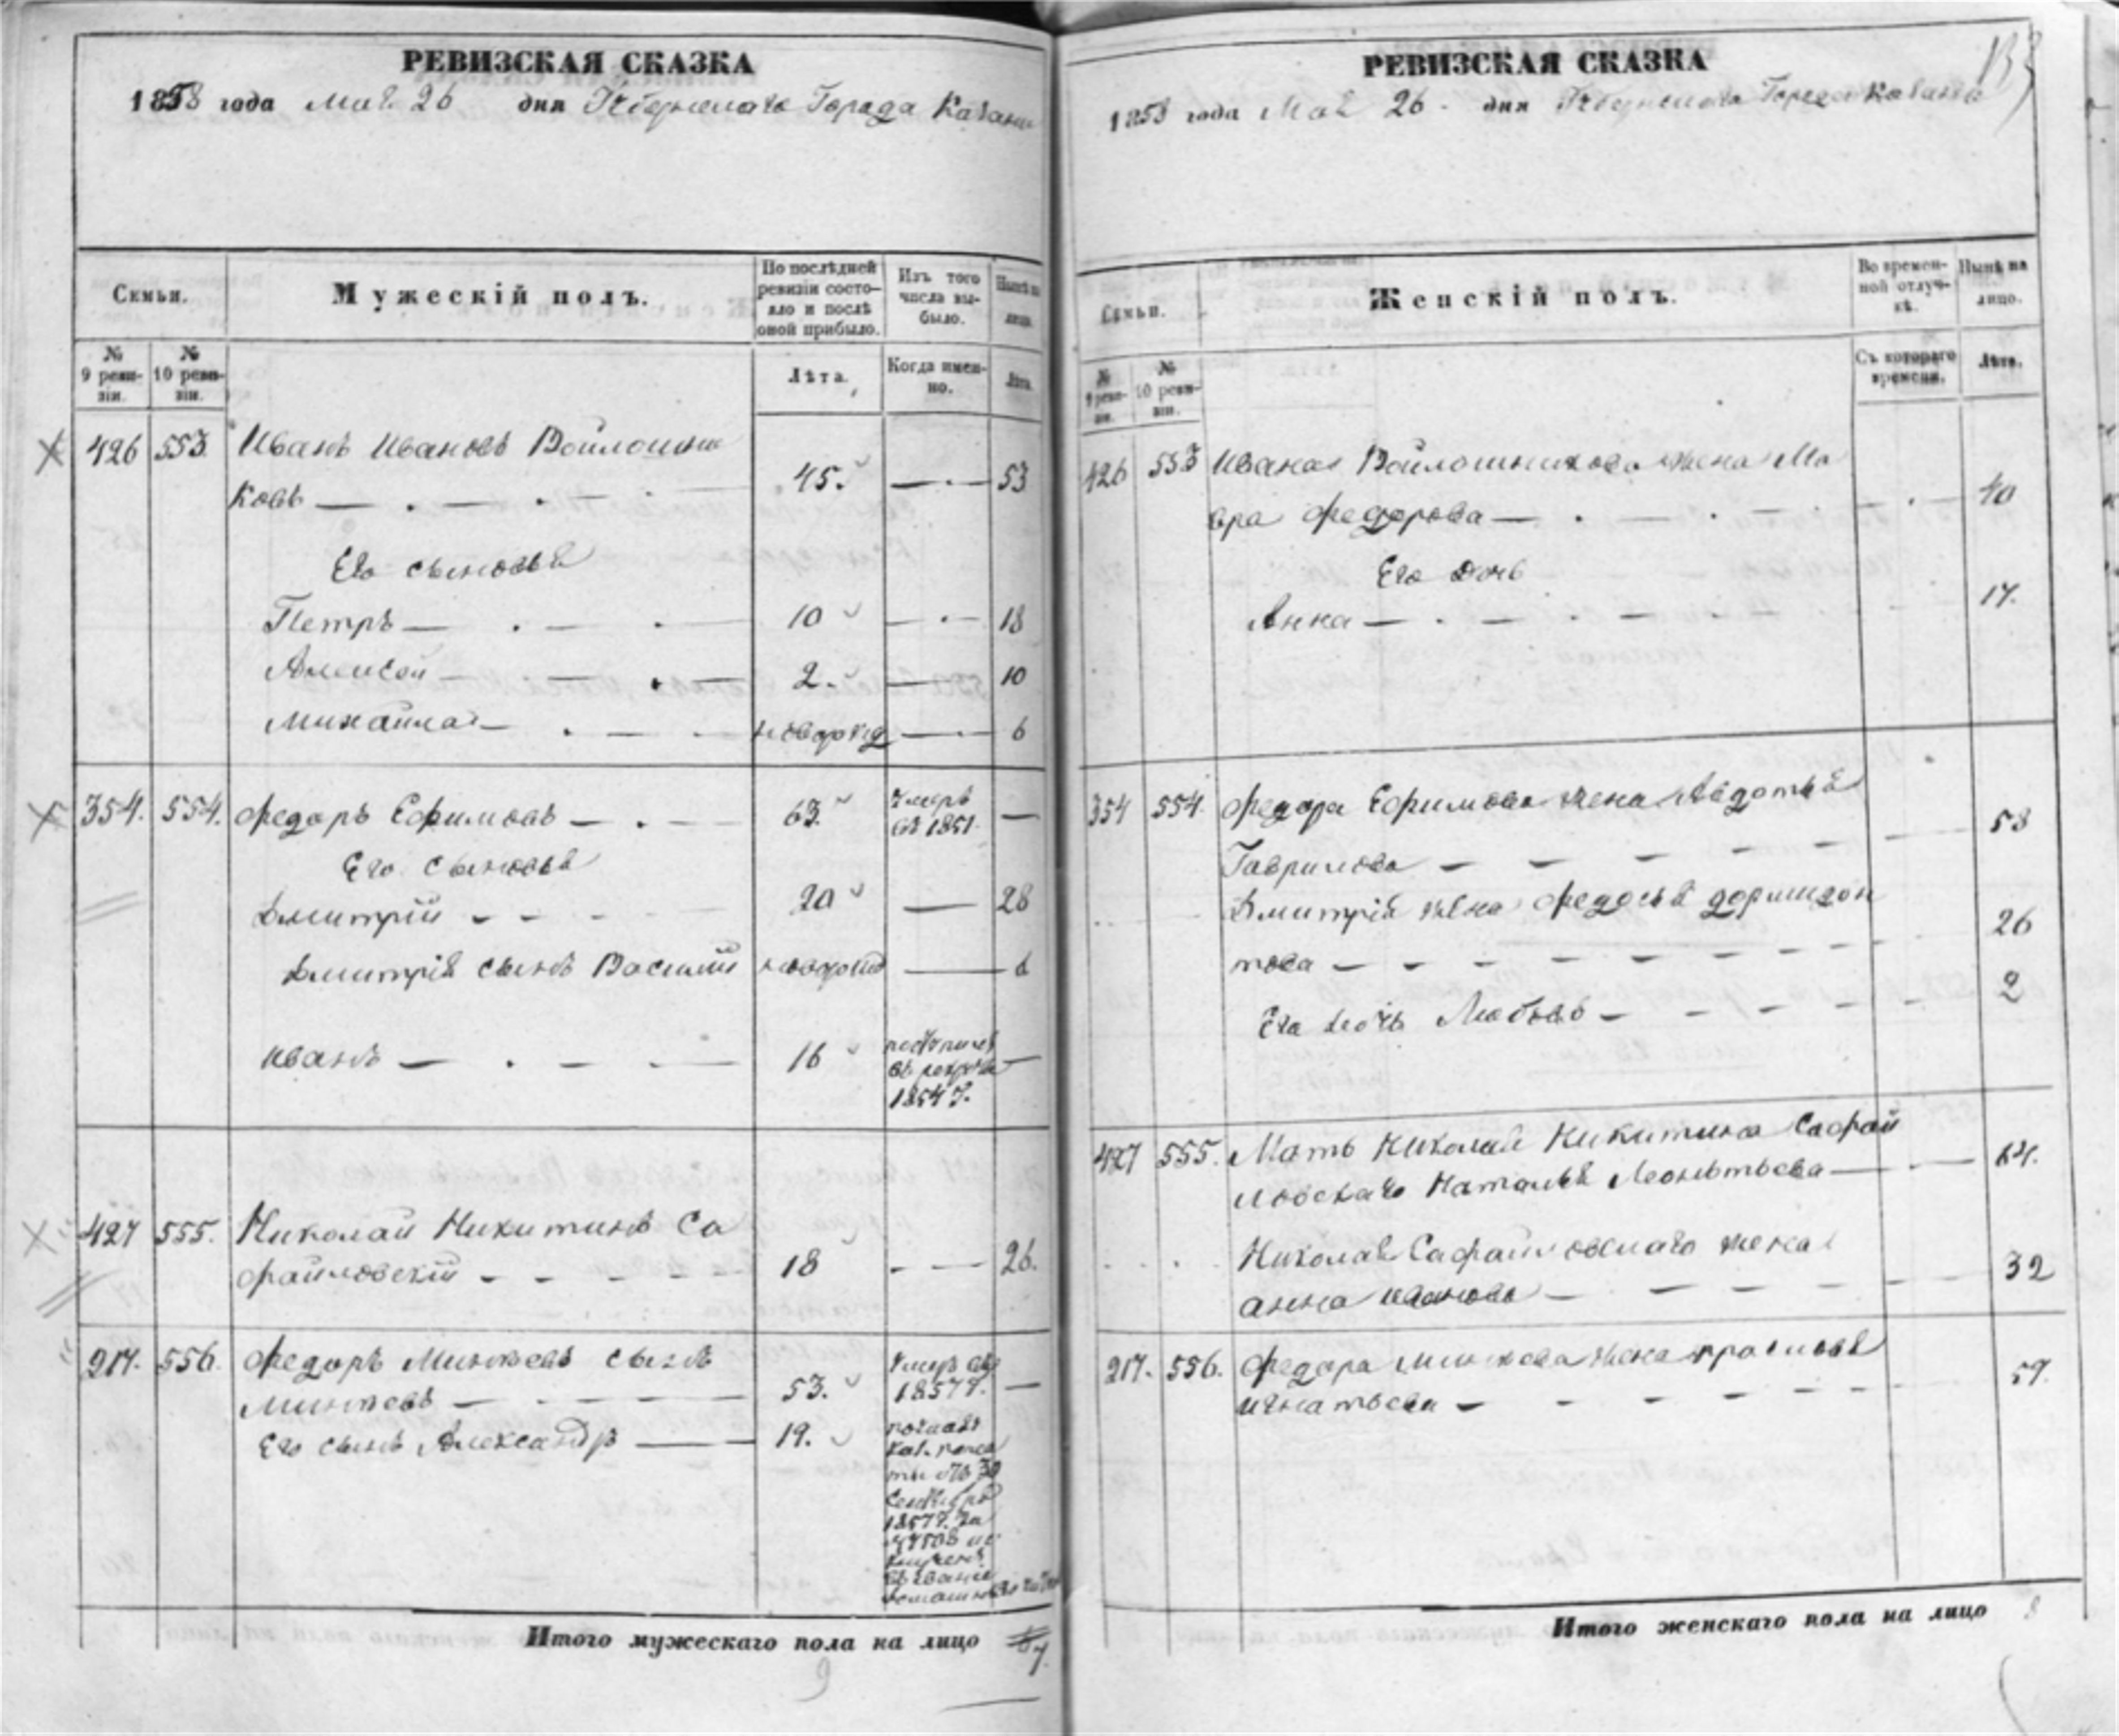 РЕВИЗСКАЯ СКАЗКА
1858 года Мая 26 дня Губернскаго Города Казани
Семьи.
Мужескій полъ.
По послѣдней ревизіи состояло и послѣ оной прибыло.
Изъ того числа выбыло.
Нынѣ на лицо.
№ 9 ревизіи.
№ 10 ревизіи.
Лѣта.
Когда именно.
Лѣта.
426 553. Иванъ Ивановъ Войлошни
ковъ 45. 53
Его сыновья
Петръ 10 18
Алексей 2. 10
Михайла новорожд 6
354. 554. Федоръ Ефимовъ 63. умеръ въ 1851.
Его сыновья
Дмитрій 20 28
Дмитрія сынъ Василій новорожд 6
Иванъ 16 поступилъ въ рекруты 1854 г.
427 555. Николай Никитинъ Са
файловскій 18 26.
217. 556. Федоръ Минѣевъ сынъ
Минѣевъ 53. умеръ въ 1857 г.
Его сынъ Александръ 19.
1857 г. за
Итого мужескаго пола на лицо 7
9
РЕВИЗСКАЯ СКАЗКА
1858 года Мая 26 дня Губернскаго Города Казани
Семьи.
Женскій полъ.
Во временной отлучкѣ.
Нынѣ на лицо.
№ 9 ревизіи.
№ 10 ревизіи.
Съ котораго времени.
Лѣта.
426 553 Ивана Войлошникова жена Ма
вра Федорова 40
Его дочь
Анна 17.
354 554. Федора Ефимова жена Авдотья
Гаврилова 58
Дмитрія жена Федосья Доримедон
това 26
Его дочь Любовь 2
427 555. Мать Николая Никитина Сафай
ловскаго Наталья Леонтьева 64.
Николая Сафайловскаго жена
Анна Иванова 32
217. 556. Федора Минѣева жена Прасковья
Игнатьева 59.
Итого женскаго пола на лицо 8